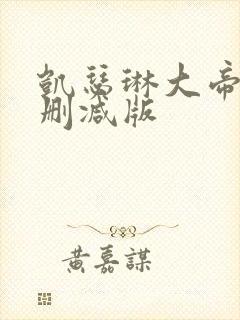 凯瑟琳大帝
删减版
黄嘉謀